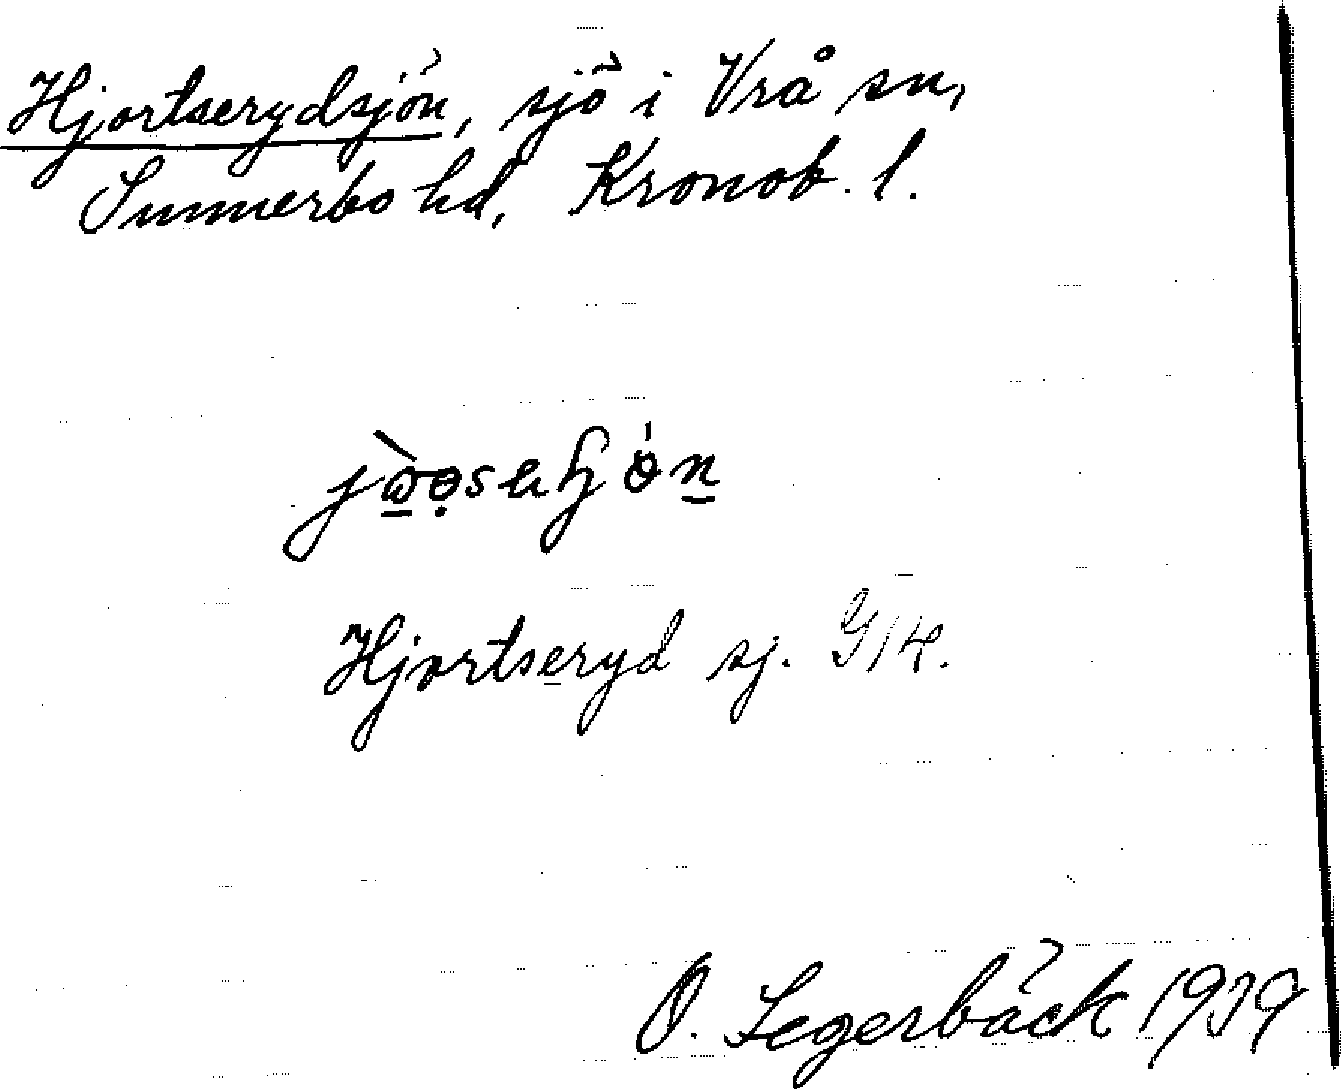 Hjortserydsjön, sjö i Vrå sn,
Sunnerbo hd, Kronob. l.
Hjortseryd sj. G14.
O. Segerbäck 1939